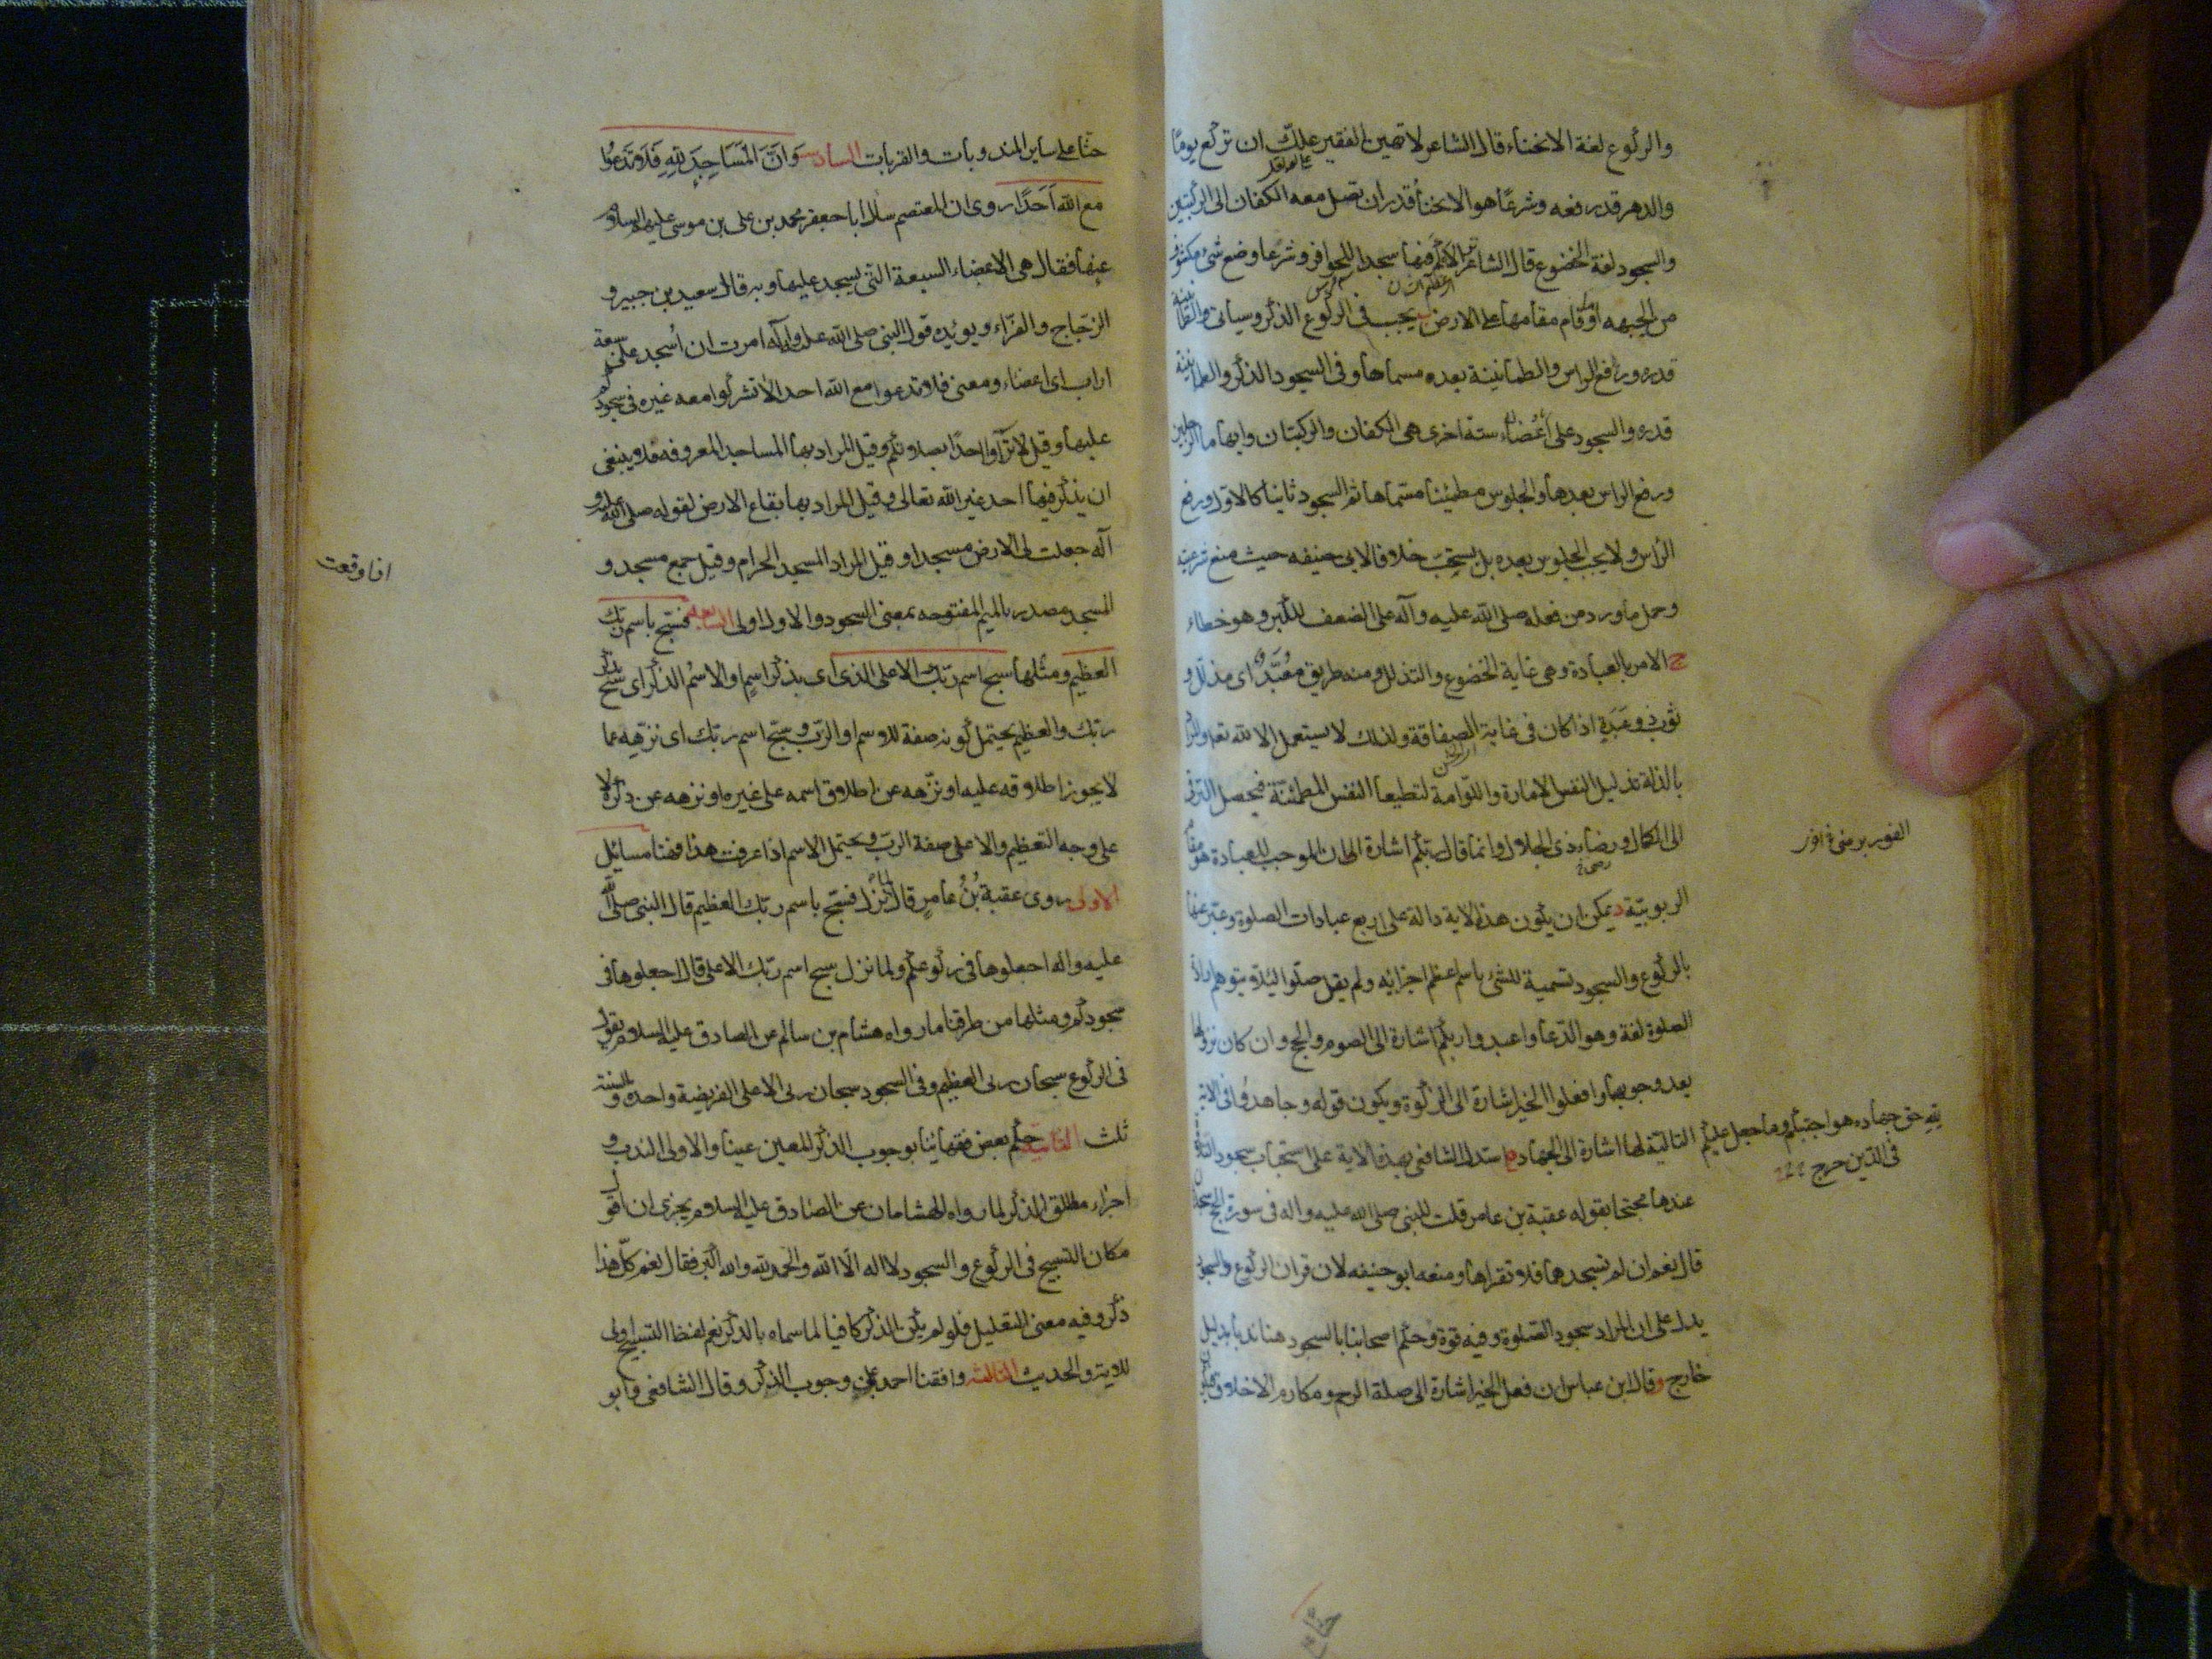 والركوع لغة الانحناء قال الشاعر لا تهين الفقير علك ان تركع يومًا
والدهر قدر رفعه وشرعًا هو الانحناء قدر ان تصل معه الكفان الى الركبتين
والسجود لغة الخضوع قال الشاعر ترى الاكم فيها سجدا للحوافر وشرعا وضع شيء مكشوف
من الجبهه او ما قام مقامها على الارض ب يجب في الركوع الذكر وسياتي والطمأنينة
قدره ورفع الراس والطمانينة بعده مسماها وفي السجود الذكر والطمانينة
قدره والسجود على اعضاء ستة اخرى هي الكفان والركبتان وابهاما الرجلين
ورفع الراس بعدها والجلوس مطمئنا مسماها ثم السجود ثانيا كالاول ورفع
الراس ولا يجب الجلوس بعده بل يستحب خلافا لابي حنيفه حيث منع شرعيته
وحمل ما ورد من فعله صلى الله عليه وآله على الضعف للكبر وهو خطاء
ج الامر بالعبادة وهي غاية الخضوع والتذلل ومنه طريق مُعَبَّد اى مذلل و
ثوب ذو عَبَدة اذا كان في غاية الصفاقة ولذلك لا يستعمل الا لله تعالى والمراد
بالذلة تذليل النفس الامارة واللوامة لتطيعا النفس المطمئنة فيحصل الترقي
الى الكمال ورضاء ذى الجلال وانما قال ربكم اشارة الى ان الموجب للعبادة هو مقام
الفور بر منغ افر
الربوبيّة د يمكن ان يكون هذه الاية دالة على اربع عبادات الصلوة وعبّر عنها
بالركوع والسجود تسمية للشئ باسم اعظم اجزائه ولم يقل صلّوا لئلا يتوهم ارادة
الصلوة لغة وهو الدّعا واعبدوا ربكم اشارة الى الصوم والحج وان كان نزولها
بعد وجوبهما وافعلوا الخير اشارة الى الزكوة ويكون قوله وجاهدوا في الاية
التالية لها اشارة الى الجهاد ه استدل الشافعي بهذه الاية على استحباب سجود التلاوة
لله حق جهاده هو اجتبيكم وما جعل عليكم
فى الدين حرج
عندها محتجا بقوله عقبة بن عامر قلت للنبى صلى الله عليه واله فى سورة الحج سجدتان
قال نعم ان لم تسجدهما فلا تقراها ومنعه ابو حنيفه لان قران الركوع والسجود
يدل على ان المراد سجود الصلوة وفيه قوة وحكم اصحابنا بالسجود هنا ندبا بدليل
خارج و قال ابن عباس ان فعل الخير اشارة الى صلة الرحم ومكارم الاخلاق
حثّا على ساير المندوبات والقربات السادسة وَاَنَّ المَسَاجِدَ لِلّهِ فَلا تَدعُوا
مع الله اَحَدًا روى ان المعتصم سال ابا جعفر محمد بن على بن موسى عليهم السلام
عنها فقال هى الاعضاء السبعة التى يسجد عليها وبه قال سعيد بن جبير و
الزجّاج والفرّاء ويويّده قول النبى صلى الله عليه وآله امرت ان اسجد على سبعة
اراب اى اعضاء ومعنى فلا تدعوا مع الله احدا لا تشركوا معه غيره فى سجودكم
عليها وقيل لا تراؤا احدًا بصلوتكم وقيل المراد بها المساجد المعروفه فلا ينبغى
ان يذكر فيها احد غير الله تعالى وقيل المراد بها بقاع الارض لقوله صلى الله عليه و
آله جعلت لى الارض مسجدا وقيل المراد المسجد الحرام وقيل جمع مسجد و
المسجد مصدر بالميم المفتوحه بمعنى السجود والاول اولى السابعة فسبّح باسم ربّك
العظيم ومثلها سبح اسم ربّك الاعلى الذى اى بذكر اسم او الاسم الذكر اى سبّح بذكر
ربّك والعظيم يحتمل كونه صفة للاسم او الربّ وسبّح اسم ربّك اى نزّهه عما
لا يجوز اطلاقه عليه او نزّهه عن اطلاق اسمه على غيره او نزهه عن ذكره لا
على وجه التعظيم والاعلى صفة الربّ ويحتمل الاسم اذا عرفت هذا فهنا مسائل
الاولى روى عقبة بن عامر قال لما نزل فسبّح باسم ربّك العظيم قال النبى صلى الله
عليه واله اجعلوها فى ركوعكم ولما نزل سبح اسم ربّك الاعلى قال اجعلوها فى
سجودكم ومثلها من طرقنا ما رواه هشام بن سالم عن الصادق عليه السلام يقول
فى الركوع سبحان ربى العظيم وفى السجود سبحان ربى الاعلى الفريضة واحده والسنة
ثلث الثانية حكم بعض فقهائنا بوجوب الذكر المعين عينا والاولى الندب و
اجزاء مطلق الذكر لما رواه الهشامان عن الصّادق عليه السلام يجزى ان اقول
مكان التسبيح فى الركوع والسجود لا اله الّا الله والحمد لله والله اكبر فقال نعم كلّ هذا
ذكر وفيه معنى التعليل فلو لم يكن الذكر كافيا لما سماه بالذكر نعم لفظ التسبيح اولى
للاية والحديث الثالثة وافقنا احمد على وجوب الذكر وقال الشافعى وابو